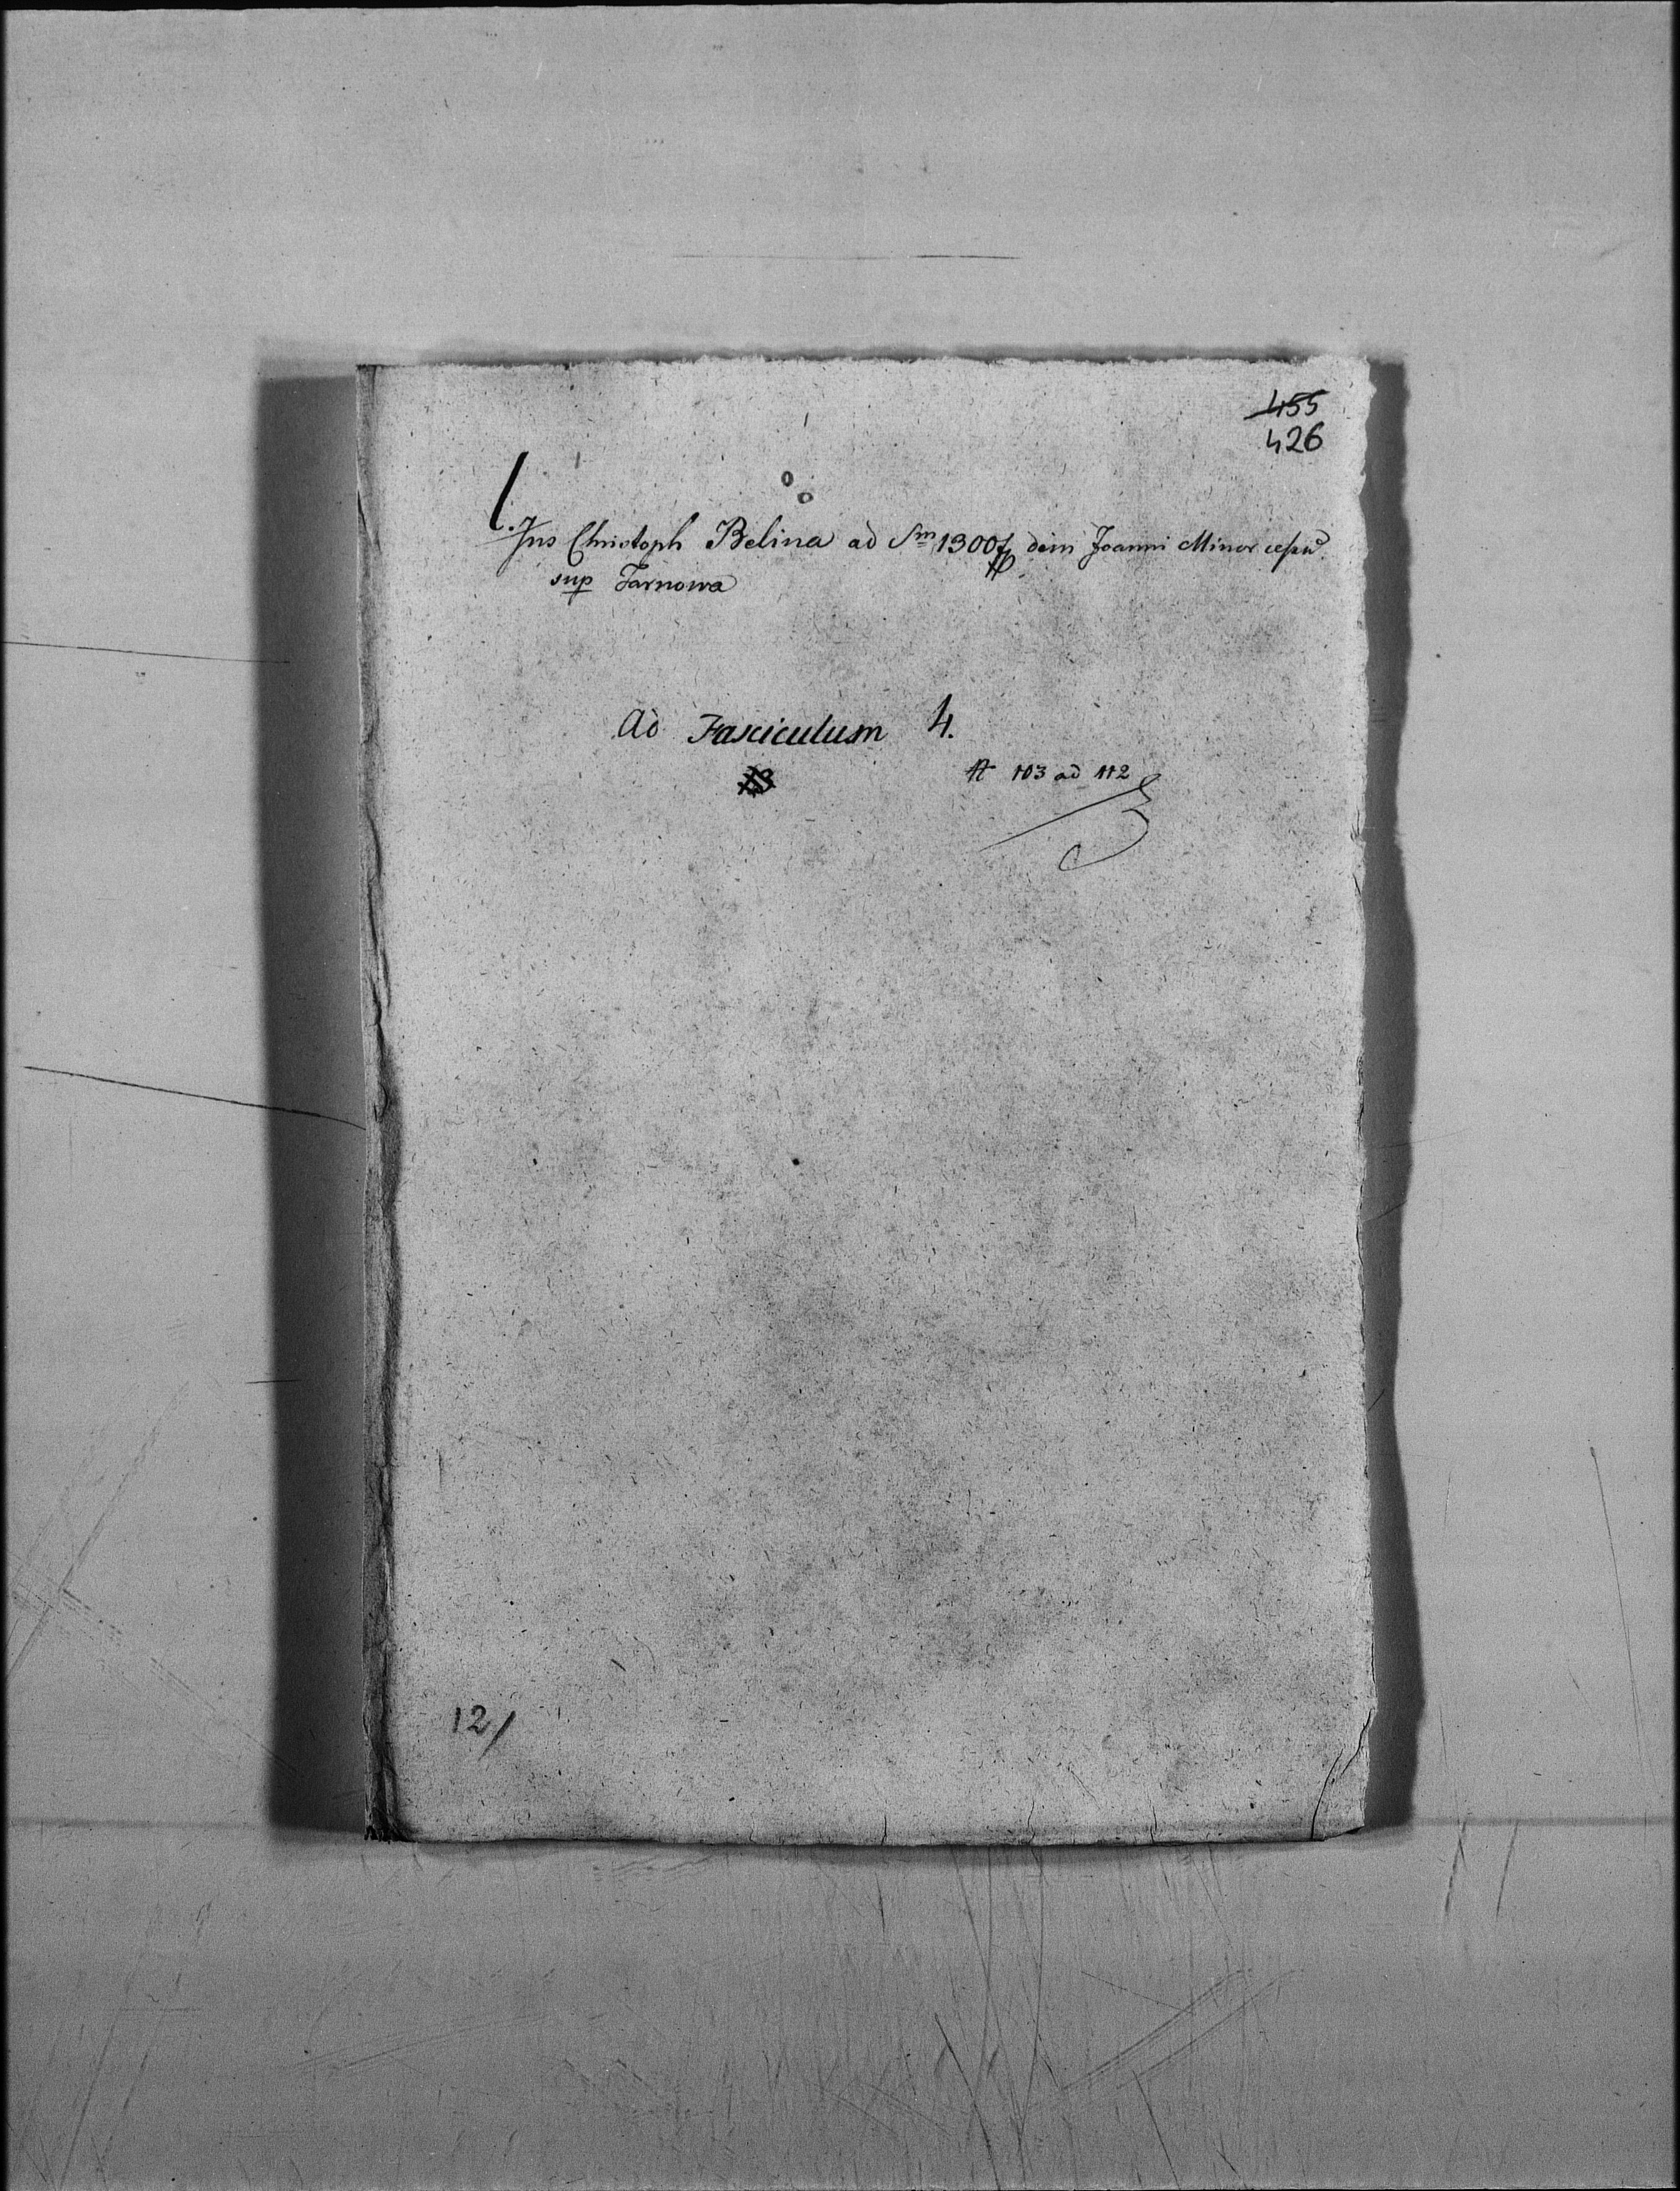 455
426
1.
Jus Christoph Belina ad Sm 1300 f dein Joanni Minor
sup Tarnowa
Ad Fasciculum 4.
A 103 ad 112
12/